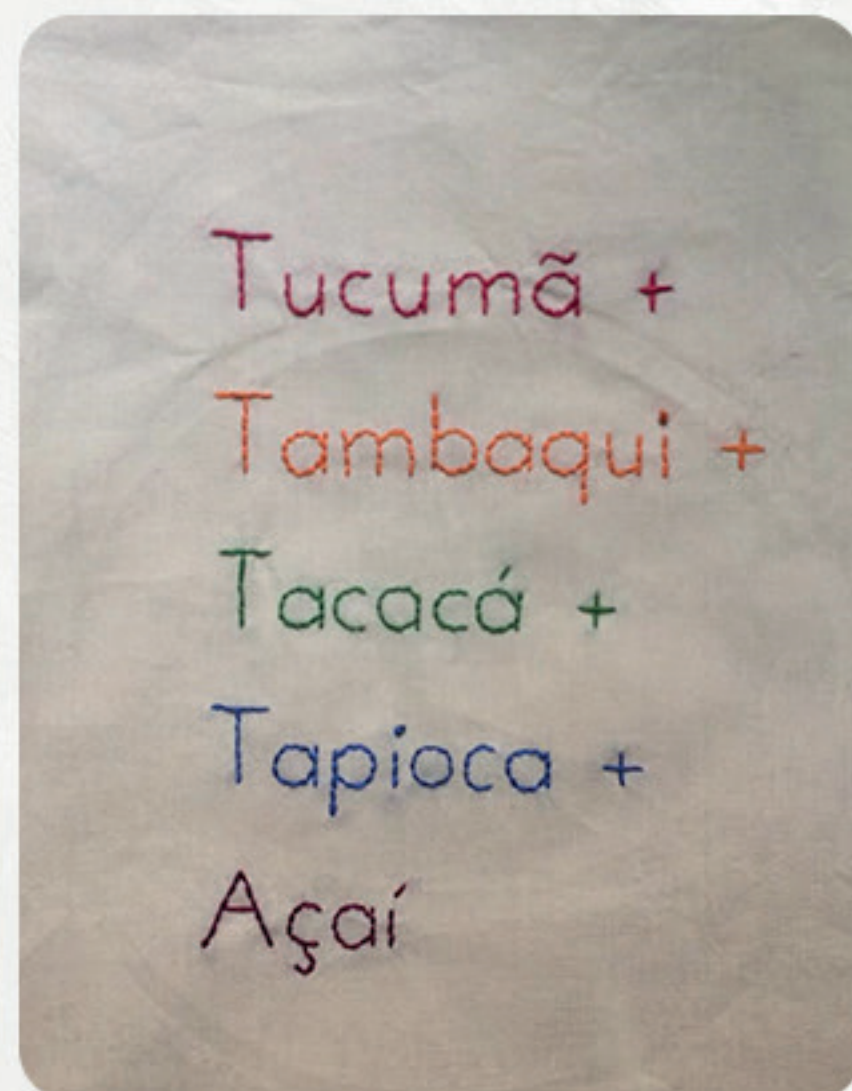 Tucumã +
Tambaqui +
Tacacá +
Tapioca +
Açaí